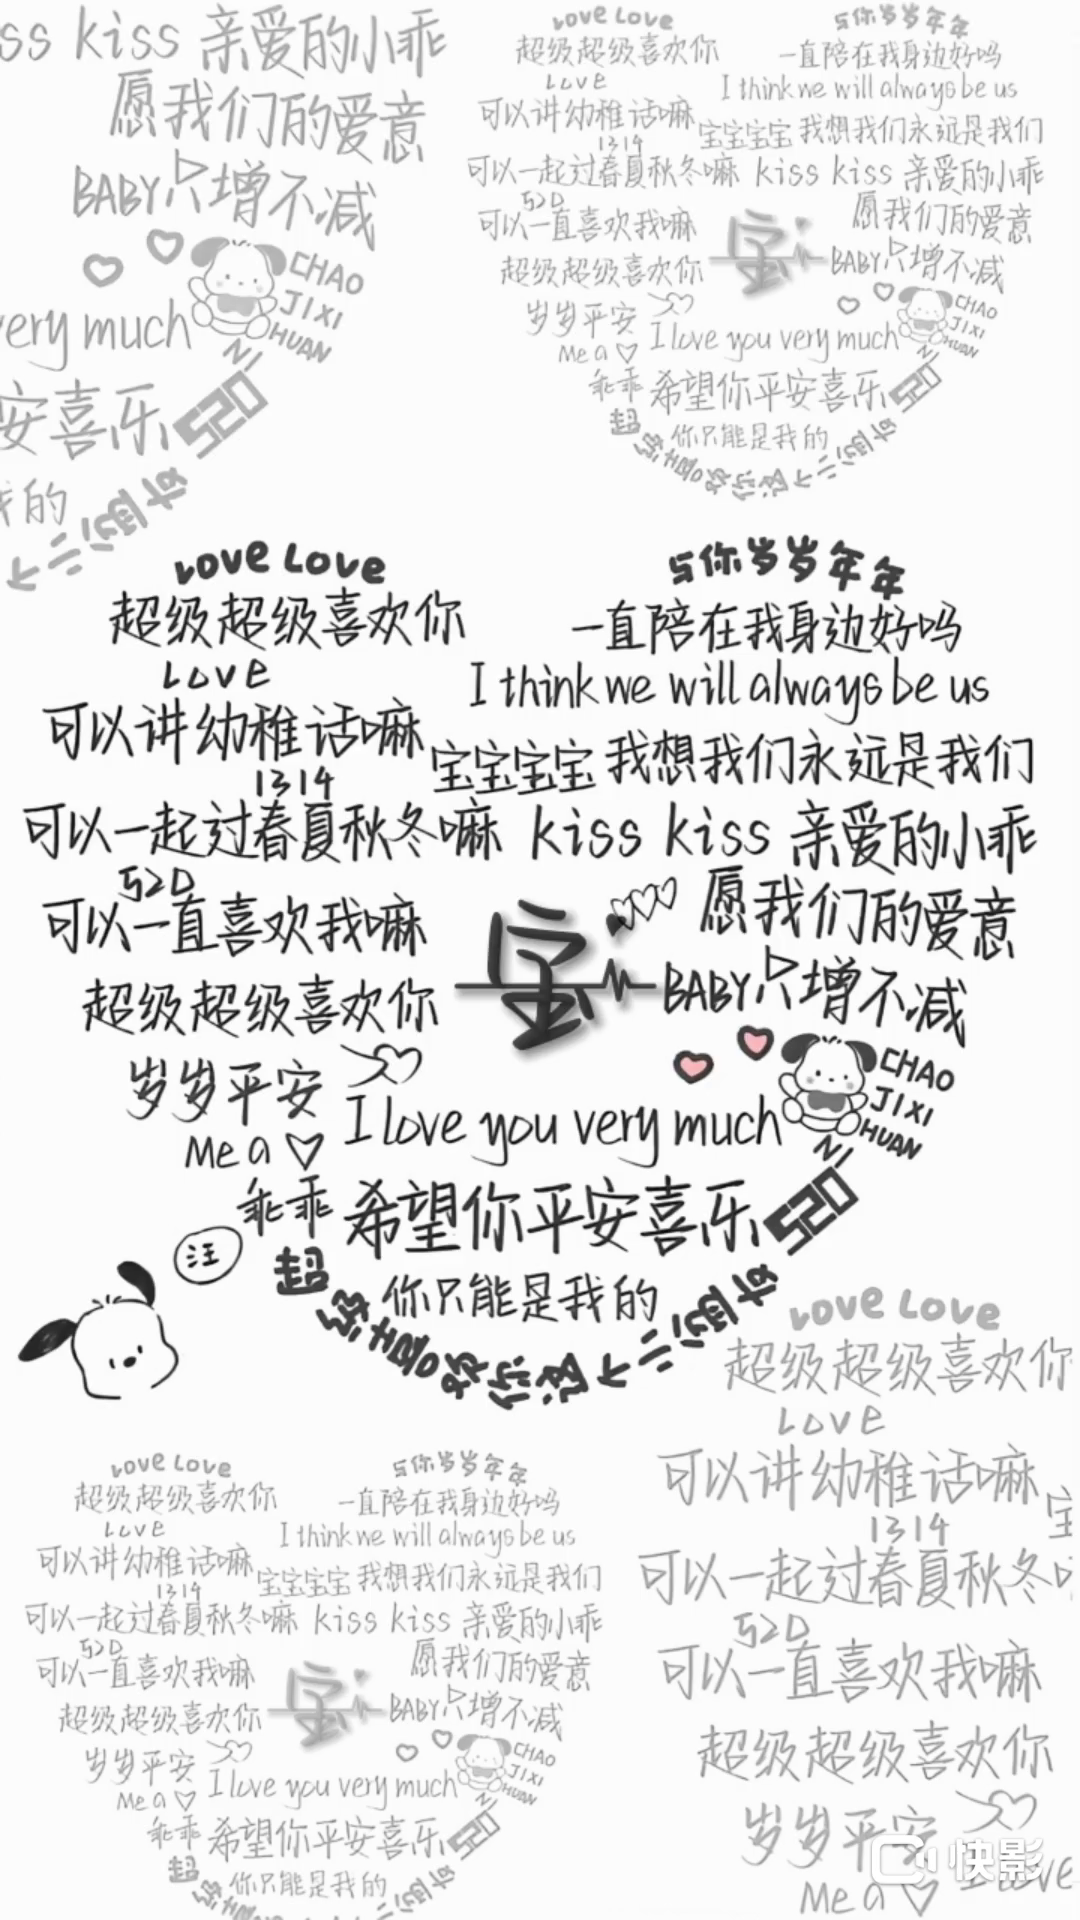 ss kiss 亲爱的小乖
愿我们的爱意
BABY只增不减
CHAO
JIXI
HUAN
NI
very much
安喜乐 520
我的
Love Love
超级超级喜欢你
Love
可以讲幼稚话嘛
1314
可以一起过春夏秋冬嘛
520
可以一直喜欢我嘛
超级超级喜欢你
岁岁平安
Me a
乖乖
与你岁岁年年
一直陪在我身边好吗
I think we will always be us
宝宝宝宝 我想我们永远是我们
kiss kiss 亲爱的小乖
愿我们的爱意
宝
BABY只增不减
CHAO
JIXI
HUAN
NI
I love you very much
希望你平安喜乐 520
你只能是我的
Love Love
超级超级喜欢你
Love
可以讲幼稚话嘛
1314
可以一起过春夏秋冬嘛
520
可以一直喜欢我嘛
超级超级喜欢你
岁岁平安
Me a
乖乖
与你岁岁年年
一直陪在我身边好吗
I think we will always be us
宝宝宝宝 我想我们永远是我们
kiss kiss 亲爱的小乖
愿我们的爱意
宝
BABY只增不减
CHAO
JIXI
HUAN
NI
I love you very much
希望你平安喜乐 520
你只能是我的
超级喜欢你这个
汪
Love Love
超级超级喜欢你
Love
可以讲幼稚话嘛
1314
可以一起过春夏秋冬
520
可以一直喜欢我嘛
超级超级喜欢你
岁岁平安
I love
Me a
Love Love
超级超级喜欢你
Love
可以讲幼稚话嘛
1314
可以一起过春夏秋冬嘛
520
可以一直喜欢我嘛
超级超级喜欢你
岁岁平安
Me a
乖乖
与你岁岁年年
一直陪在我身边好吗
I think we will always be us
宝宝宝宝 我想我们永远是我们
kiss kiss 亲爱的小乖
愿我们的爱意
宝
BABY只增不减
CHAO
JIXI
HUAN
NI
I love you very much
希望你平安喜乐 520
你只能是我的
快影